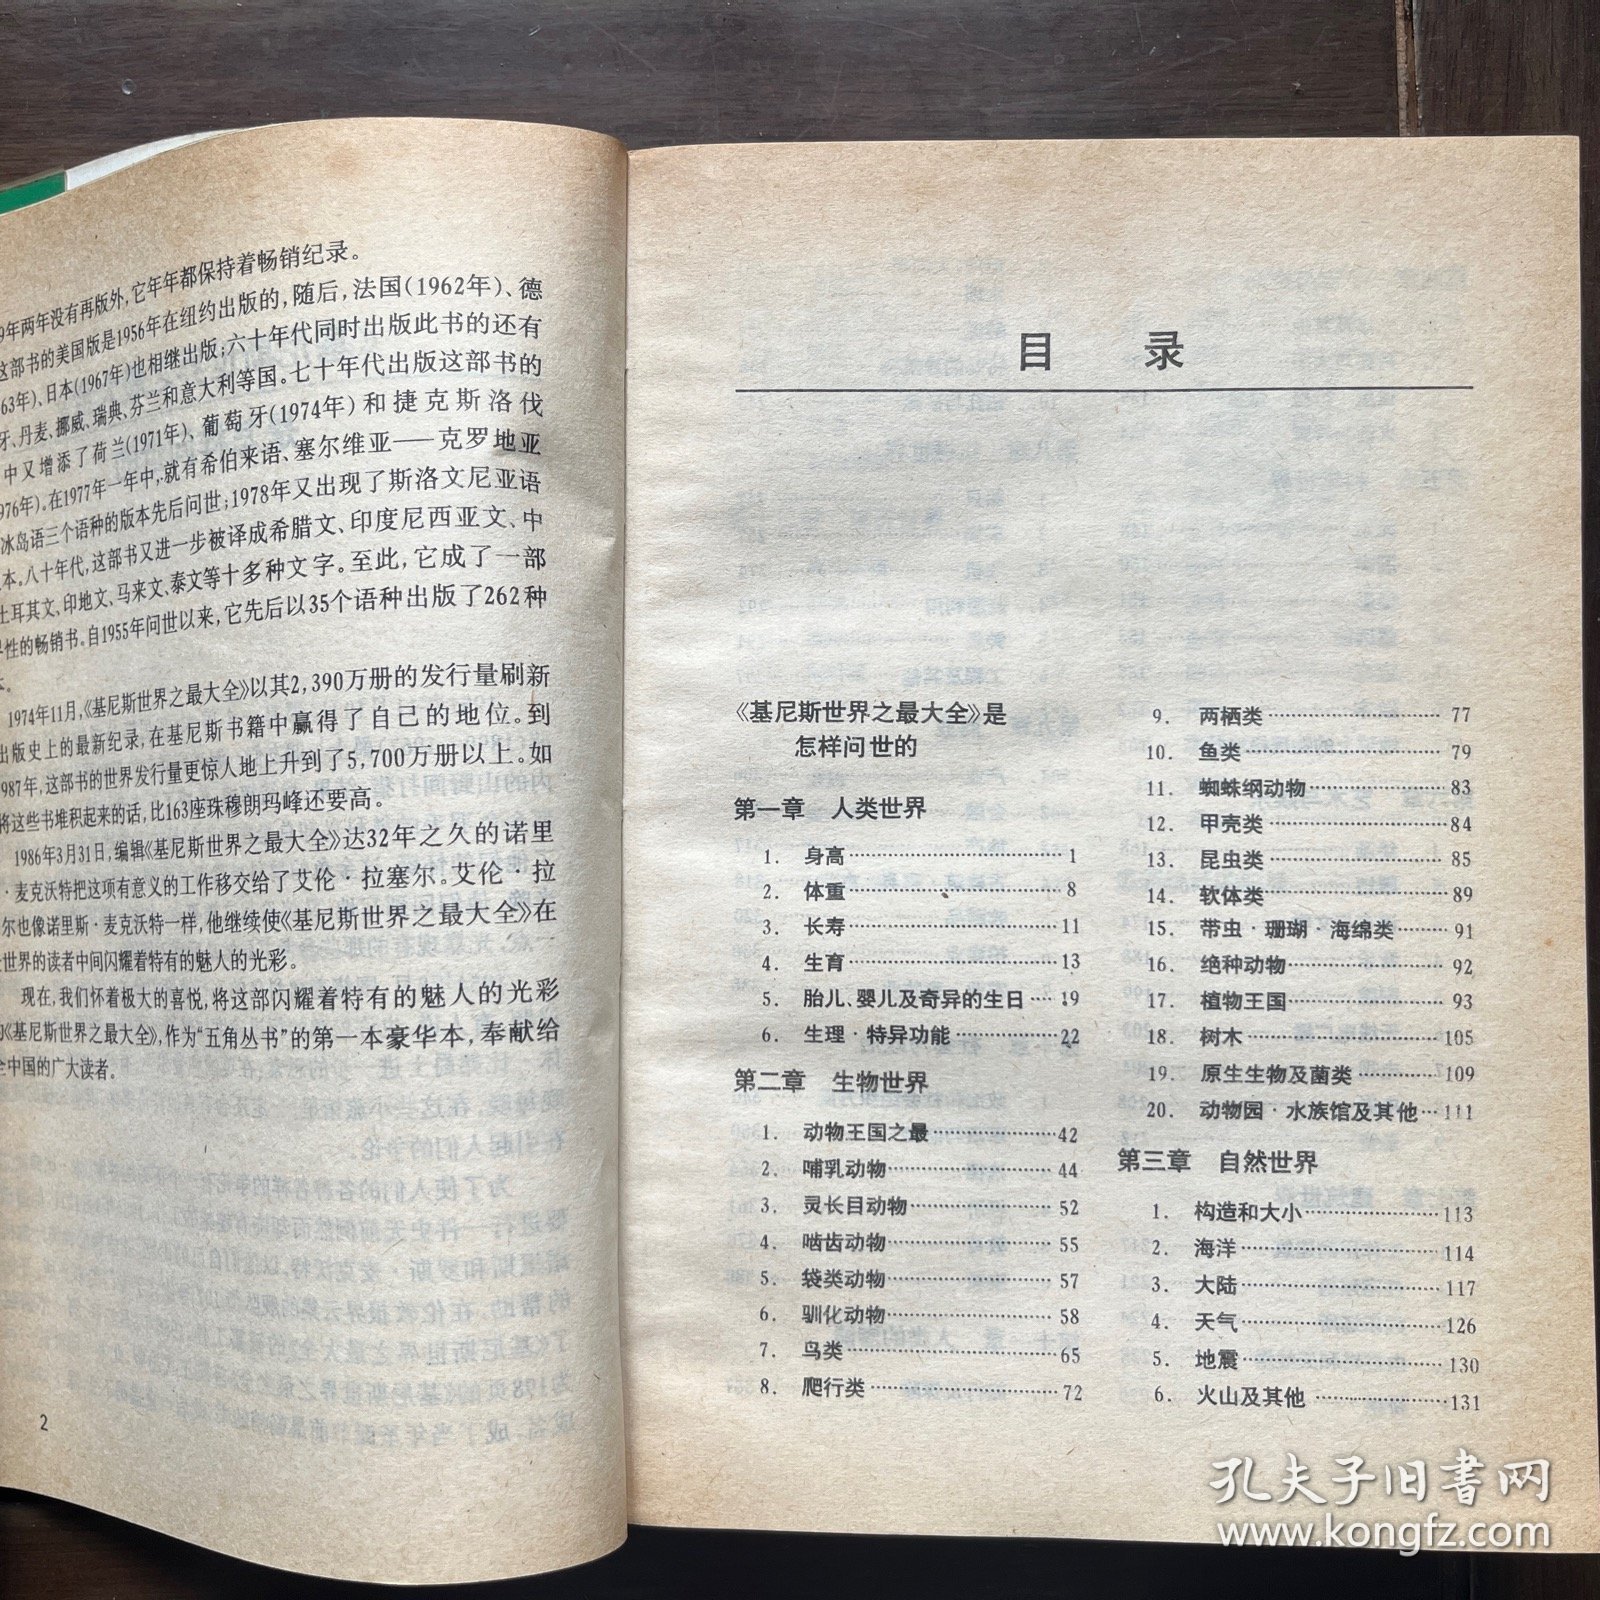 年年都保持着畅销纪录。
9年两年没有再版外，它年年都保持着畅销纪录。
这部书的美国版是1956年在纽约出版的，随后，法国(1962年)、德
63年)、日本(1967年)也相继出版；六十年代同时出版此书的还有
牙、丹麦、挪威、瑞典、芬兰和意大利等国。七十年代出版这部书的
中又增添了荷兰(1971年)、葡萄牙(1974年)和捷克斯洛伐
976年)。在1977年一年中，就有希伯来语、塞尔维亚——克罗地亚
冰岛语三个语种的版本先后问世；1978年又出现了斯洛文尼亚语
本。八十年代，这部书又进一步被译成希腊文、印度尼西亚文、中
土耳其文、印地文、马来文、泰文等十多种文字。至此，它成了一部
界性的畅销书。自1955年问世以来，它先后以35个语种出版了262种
本。
1974年11月，《基尼斯世界之最大全》以其2,390万册的发行量刷新
出版史上的最新纪录，在基尼斯书籍中赢得了自己的地位。到
987年，这部书的世界发行量更惊人地上升到了5,700万册以上。如
将这些书堆积起来的话，比163座珠穆朗玛峰还要高。
1986年3月31日，编辑《基尼斯世界之最大全》达32年之久的诺里
·麦克沃特把这项有意义的工作移交给了艾伦·拉塞尔。艾伦·拉
尔也像诺里斯·麦克沃特一样，他继续使《基尼斯世界之最大全》在
世界的读者中间闪耀着特有的魅人的光彩。
现在，我们怀着极大的喜悦，将这部闪耀着特有的魅人的光彩
《基尼斯世界之最大全》，作为“五角丛书”的第一本豪华本，奉献给
全中国的广大读者。
2
目 录
《基尼斯世界之最大全》是
怎样问世的
第一章 人类世界
1. 身高……1
2. 体重……8
3. 长寿……11
4. 生育……13
5. 胎儿、婴儿及奇异的生日……19
6. 生理·特异功能……22
第二章 生物世界
1. 动物王国之最……42
2. 哺乳动物……44
3. 灵长目动物……52
4. 啮齿动物……55
5. 袋类动物……57
6. 驯化动物……58
7. 鸟类……65
8. 爬行类……72
9. 两栖类……77
10. 鱼类……79
11. 蜘蛛纲动物……83
12. 甲壳类……84
13. 昆虫类……85
14. 软体类……89
15. 带虫·珊瑚·海绵类……91
16. 绝种动物……92
17. 植物王国……93
18. 树木……105
19. 原生生物及菌类……109
20. 动物园·水族馆及其他……111
第三章 自然世界
1. 构造和大小……113
2. 海洋……114
3. 大陆……117
4. 天气……126
5. 地震……130
6. 火山及其他……131
孔夫子旧书网
www.kongfz.com